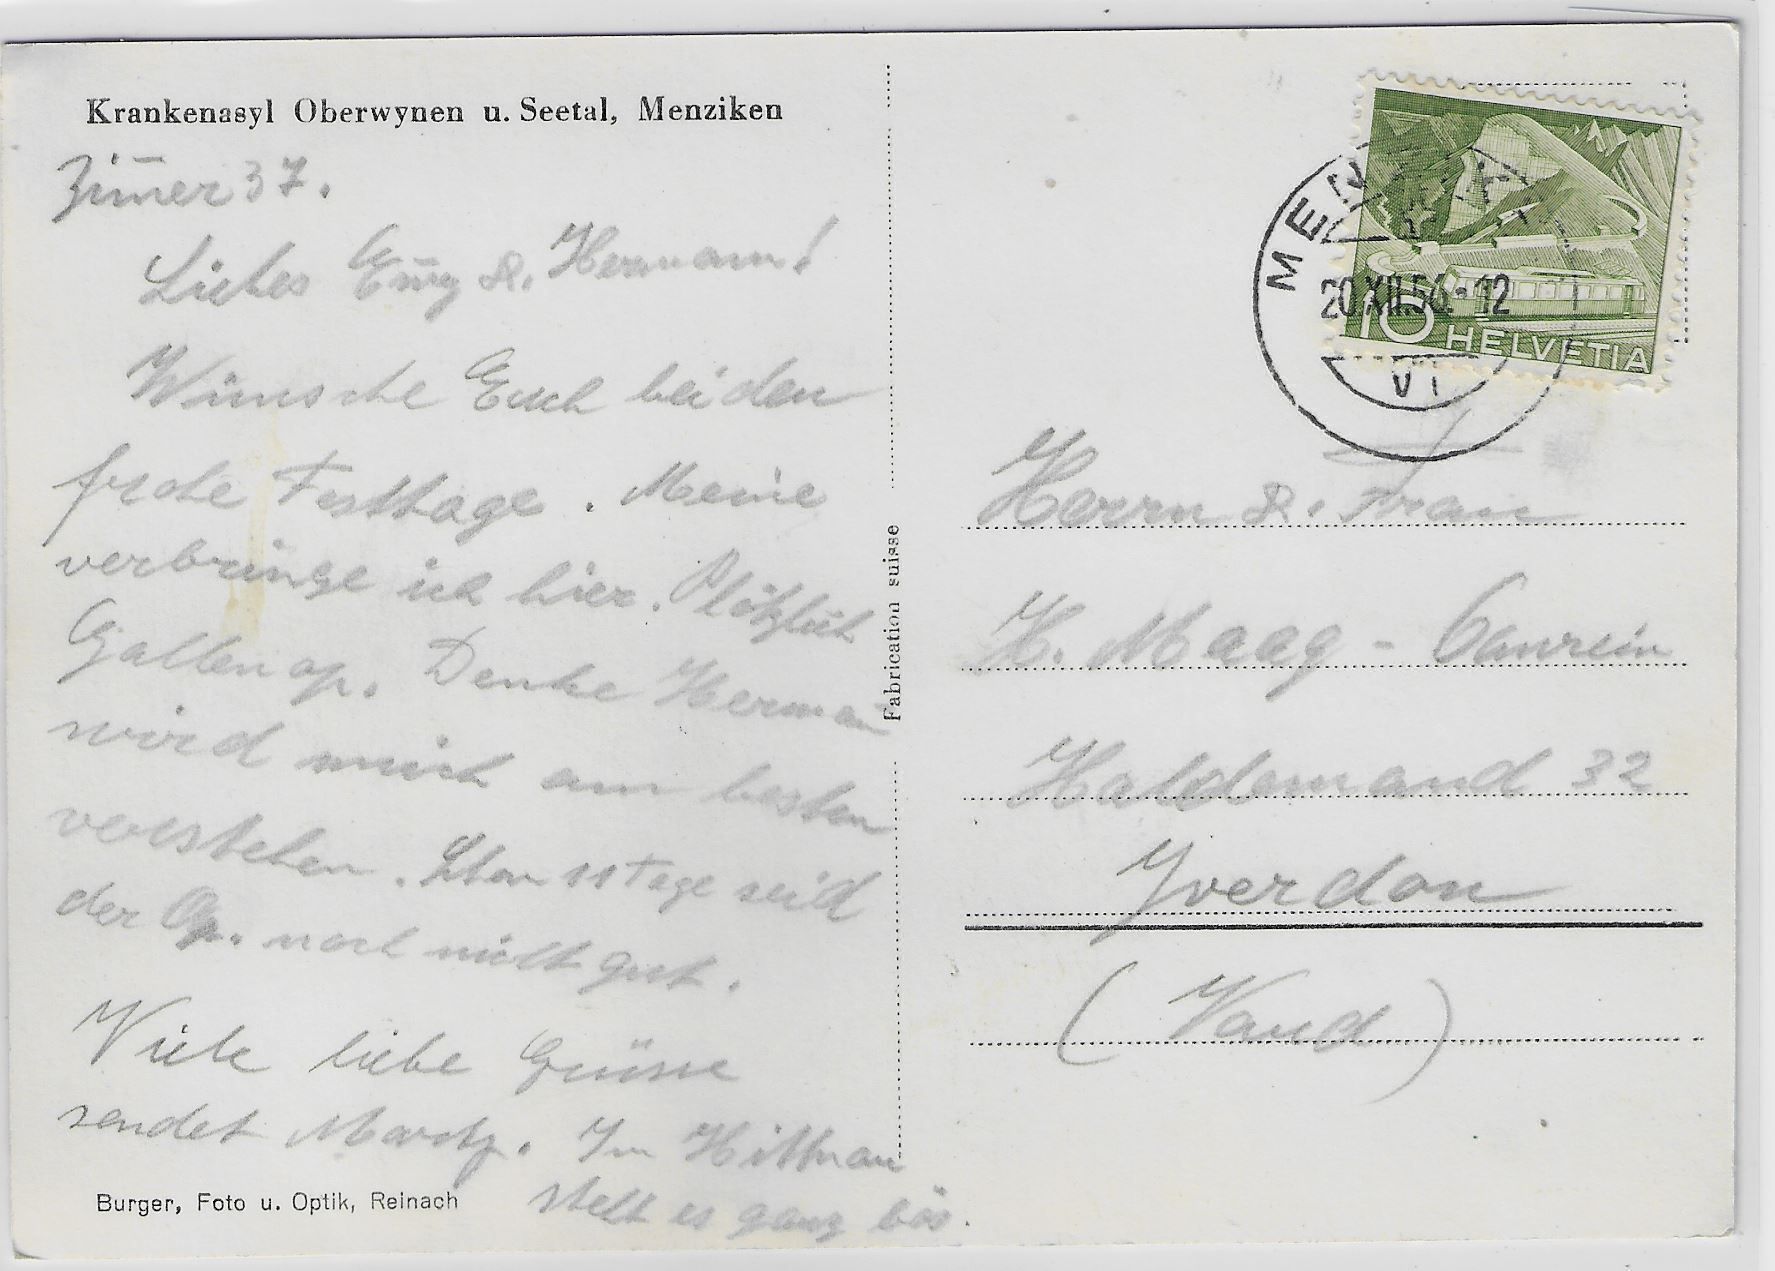 Krankenasyl Oberwynen u. Seetal, Menziken
Zim̄er 37.
Liebes Em̄y & Hermann!
Wünsche Euch beiden
frohe Festtage. Meine
verbringe ich hier. Plötzlich
Gallenop. Denke Herman̄
wird mich am besten
verstehen. Schon 11 Tage seid
der Op. noch nicht gut.
Viele liebe Grüsse
sendet Mardy. In Hittnau
steht es ganz bös.
Burger, Foto u. Optik, Reinach
Fabrication suisse
20.XII.56.-12
VI
10 HELVETIA
Herrn & Frau
H. Maag - Canrein
Haldemand 32
Yverdon
(Vaud)